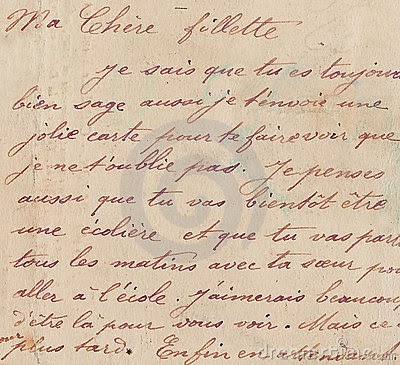 Ma Chère fillette
Je sais que tu es toujours
bien sage aussi je t'envoie une
jolie carte pour te faire voir que
je ne t'oublie pas. Je penses
aussi que tu vas bientôt être
une écolière et que tu vas part
tous les matins avec ta sœur pou
aller à l'école. J'aimerais beaucou
d'être là pour vous voir. Mais ce
plus tard. Enfin en
dreamstime